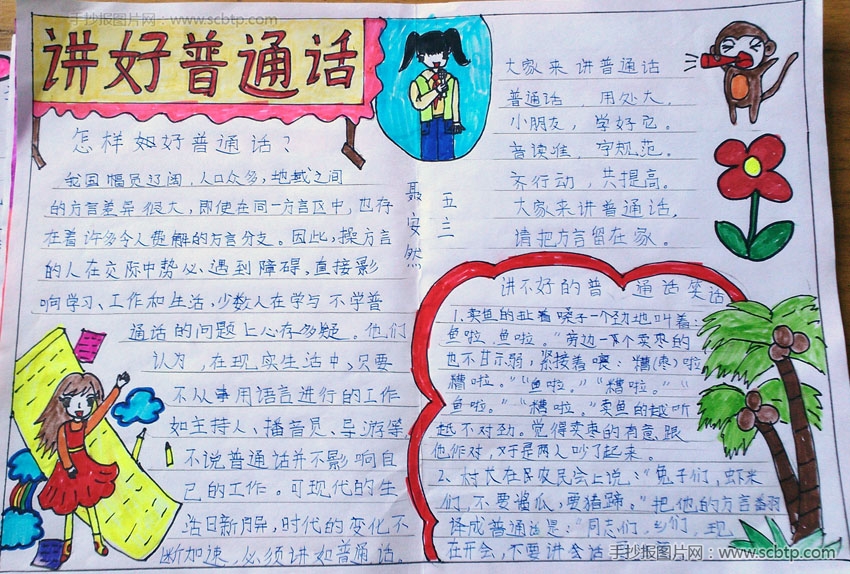 手抄报图片网:www.scbtp.com
讲好普通话
怎样姆好普通话?
我国幅员辽阔,人口众多,地域之间
的方言差异很大,即使在同一方言区中,也存
在着许多令人费解的方言分支。因此,操方言
的人在交际中势必遇到障碍,直接影
响学习、工作和生活,少数人在学与不学普
通话的问题上心存多疑。他们
认为,在现实生活中,只要
不从事用语言进行的工作
如主持人、播音员、导游等,
不说普通话并不影响自
己的工作。可现代的生
活日新月异,时代的变化不
断加速,必须讲好普通话。
五三
聂安然
大家来讲普通话
普通话,用处大,
小朋友,学好它。
音读准,字规范。
齐行动,共提高。
大家来讲普通话,
请把方言留在家。
讲不好的普通话笑话
1.卖鱼的扯着嗓子一个劲地叫着:
鱼啦,鱼啦。"旁边一个卖枣的
也不甘示弱,紧接着喂:糟(枣)啦
糟啦。""鱼啦。""糟啦。"
鱼啦。""糟啦。"卖鱼的越听
越不对劲。觉得卖枣的有意跟
他作对,于是两人吵了起来。
2、村长在农民会上说:"兔子们,虾米
们,不要酱瓜,要猪蹄。"把他的方言翻
译成普通话是:"同志们,乡们,现
在开会,不要讲会话
手抄报图片网:www.scbtp.com